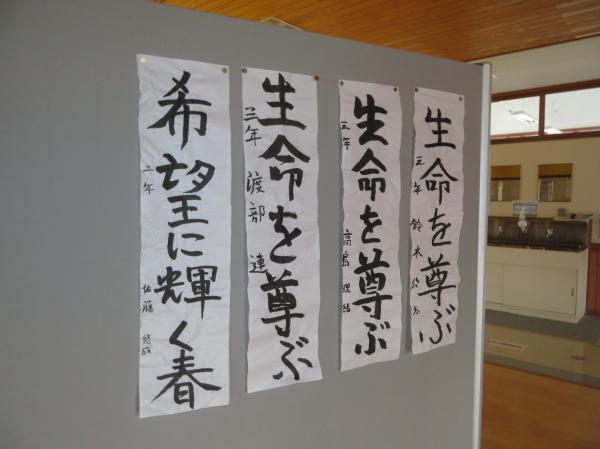 生命を尊ぶ
三年 鈴木
生命を尊ぶ
三年 高島
生命を尊ぶ
三年 渡部 連
希望に輝く春
二年 佐藤 悠成